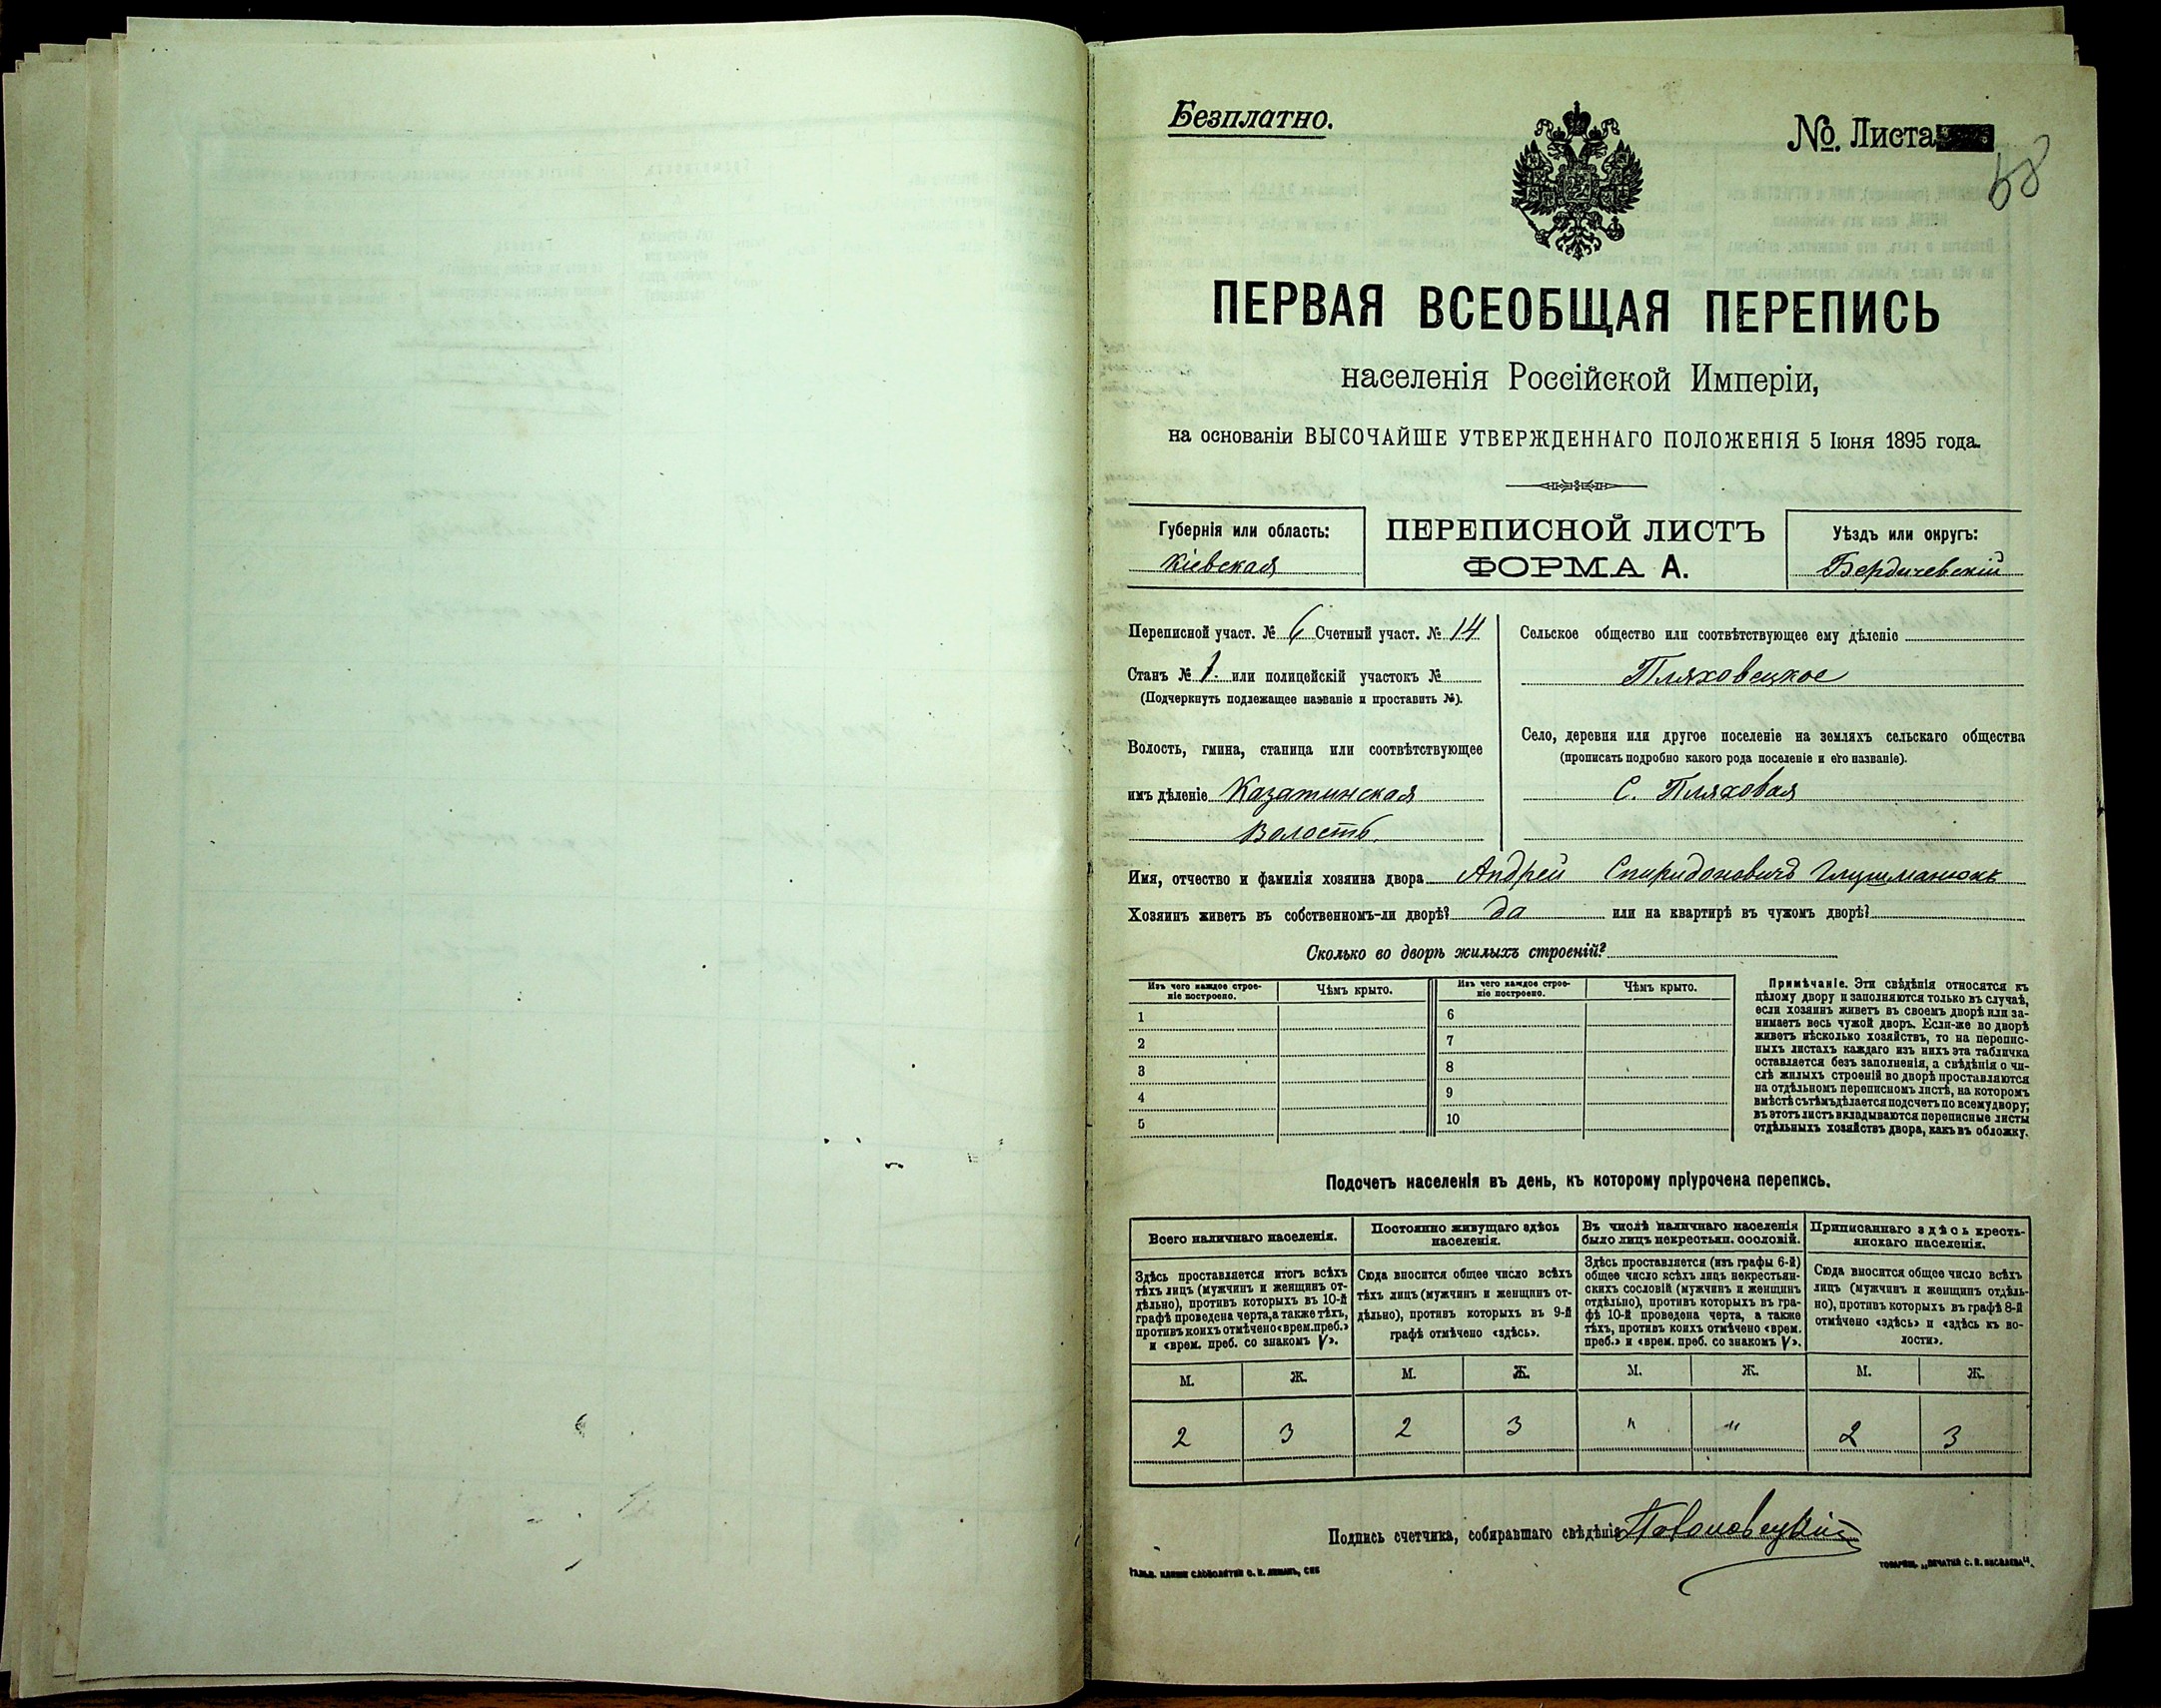 Безплатно.
№. Листа
58
ПЕРВАЯ ВСЕОБЩАЯ ПЕРЕПИСЬ
населенія Россійской Имперіи,
на основаніи ВЫСОЧАЙШЕ УТВЕРЖДЕННАГО ПОЛОЖЕНІЯ 5 Іюня 1895 года.
Губернія или область:
Кіевская
ПЕРЕПИСНОЙ ЛИСТЪ
ФОРМА А.
Уѣздъ или округъ:
Бердичевскій
Переписной участ. № 6 Счетный участ. № 14
Станъ № 1. или полицейскій участокъ №
(Подчеркнуть подлежащее названіе и проставить №).
Волость, гмина, станица или соотвѣтствующее
имъ дѣленіе Казатинская
Волость.
Сельское общество или соотвѣтствующее ему дѣленіе
Пляховецкое
Село, деревня или другое поселеніе на земляхъ сельскаго общества
(прописать подробно какого рода поселеніе и его названіе).
С. Пляховая
Имя, отчество и фамилія хозяина двора Андрей Спиридоновичъ Глушманюкъ
Хозяинъ живетъ въ собственномъ-ли дворѣ? да или на квартирѣ въ чужомъ дворѣ?
Сколько во дворѣ жилыхъ строеній?
Изъ чего каждое строе-
ніе построено.
Чѣмъ крыто.
Изъ чего каждое строе-
ніе построено.
Чѣмъ крыто.
1
2
3
4
5
6
7
8
9
10
Примѣчаніе. Эти свѣдѣнія относятся къ
цѣлому двору и заполняются только въ случаѣ,
если хозяинъ живетъ въ своемъ дворѣ или за-
нимаетъ весь чужой дворъ. Если-же во дворѣ
живетъ нѣсколько хозяйствъ, то на перепис-
ныхъ листахъ каждаго изъ нихъ эта табличка
оставляется безъ заполненія, а свѣдѣнія о чи-
слѣ жилыхъ строеній во дворѣ проставляются
на отдѣльномъ переписномъ листѣ, на которомъ
вмѣстѣ съ тѣмъ дѣлается подсчетъ по всему двору;
въ этотъ листъ вкладываются переписные листы
отдѣльныхъ хозяйствъ двора, какъ въ обложку.
Подсчетъ населенія въ день, къ которому пріурочена перепись.
Всего наличнаго населенія.
Здѣсь проставляется итогъ всѣхъ
тѣхъ лицъ (мужчинъ и женщинъ от-
дѣльно), противъ которыхъ въ 10-й
графѣ проведена черта, а также тѣхъ,
противъ коихъ отмѣчено «врем. преб.»
и «врем. преб. со знакомъ V».
Постоянно живущаго здѣсь
населенія.
Сюда вносится общее число всѣхъ
тѣхъ лицъ (мужчинъ и женщинъ от-
дѣльно), противъ которыхъ въ 9-й
графѣ отмѣчено «здѣсь».
Въ числѣ наличнаго населенія
было лицъ некрестьян. сословій.
Здѣсь проставляется (изъ графы 6-й)
общее число всѣхъ лицъ некрестьян-
скихъ сословій (мужчинъ и женщинъ
отдѣльно), противъ которыхъ въ гра-
фѣ 10-й проведена черта, а также
тѣхъ, противъ коихъ отмѣчено «врем.
преб.» и «врем. преб. со знакомъ V».
Приписаннаго здѣсь кресть-
янскаго населенія.
Сюда вносится общее число всѣхъ
лицъ (мужчинъ и женщинъ отдѣль-
но), противъ которыхъ въ графѣ 8-й
отмѣчено «здѣсь» и «здѣсь къ во-
лости».
М. Ж. М. Ж. М. Ж. М. Ж.
2 3 2 3 " " 2 3
Подпись счетчика, собиравшаго свѣдѣнія